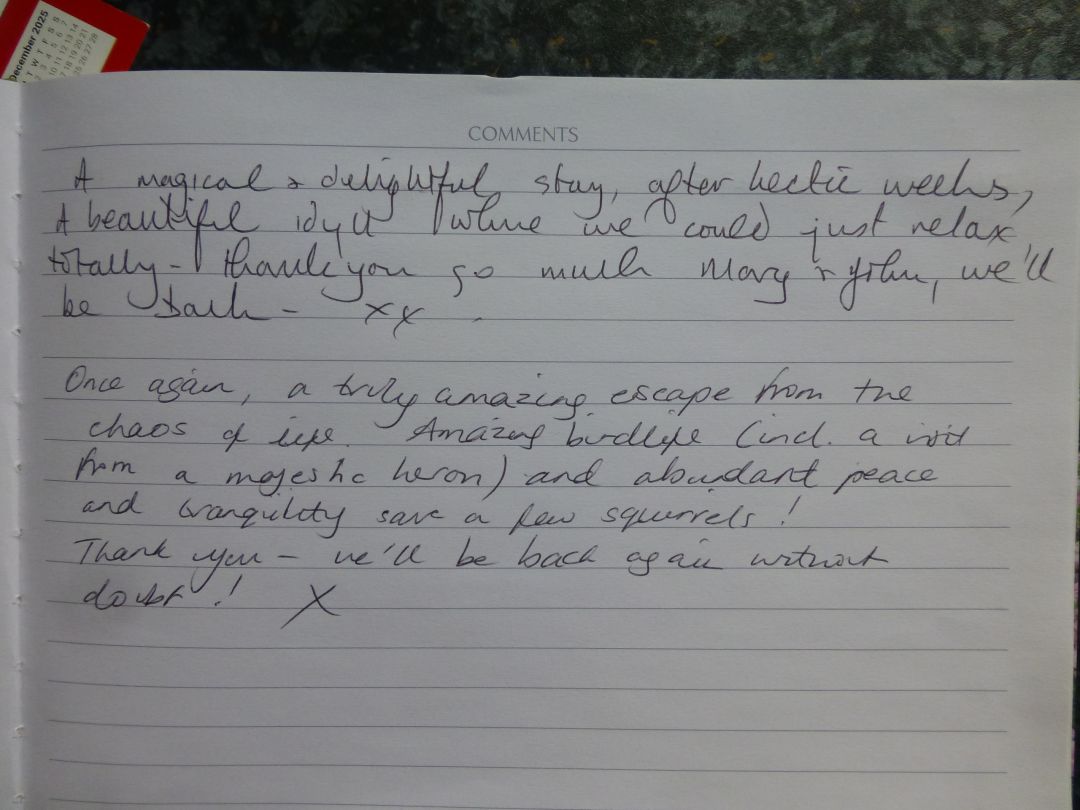 December 2025
T W T F S S
3 4 5 6 7
10 11 12 13 14
17 18 19 20 21
25 26 27 28
COMMENTS
A magical & delightful stay, after hectic weeks,
A beautiful idyll where we could just relax
totally - thank you so much Mary & John, we'll
be back - xx
Once again, a truly amazing escape from the
chaos of life. Amazing birdlife (incl. a visit
from a majestic heron) and abundant peace
and tranquility save a few squirrels!
Thank you - we'll be back again without
doubt! X